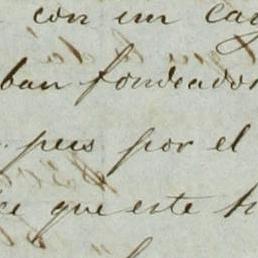 con un ca
ban fondeados
pues por el
ce que este